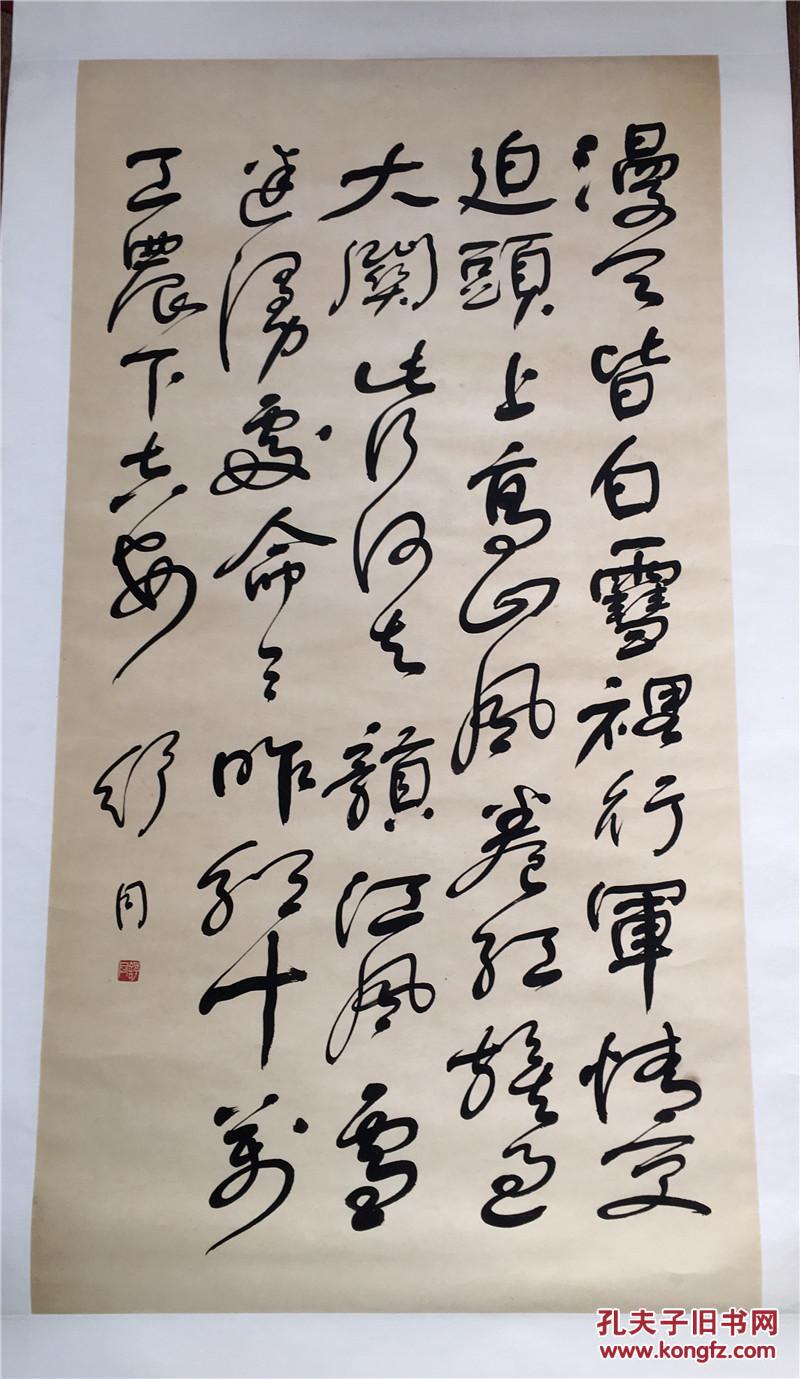 漫天皆白雪裡行軍情更
迫頭上高山風卷紅旗過
大關此行何去贛江風雪
迷漫處命令昨頒十萬
工農下吉安 舒同
孔夫子旧书网
www.kongfz.com